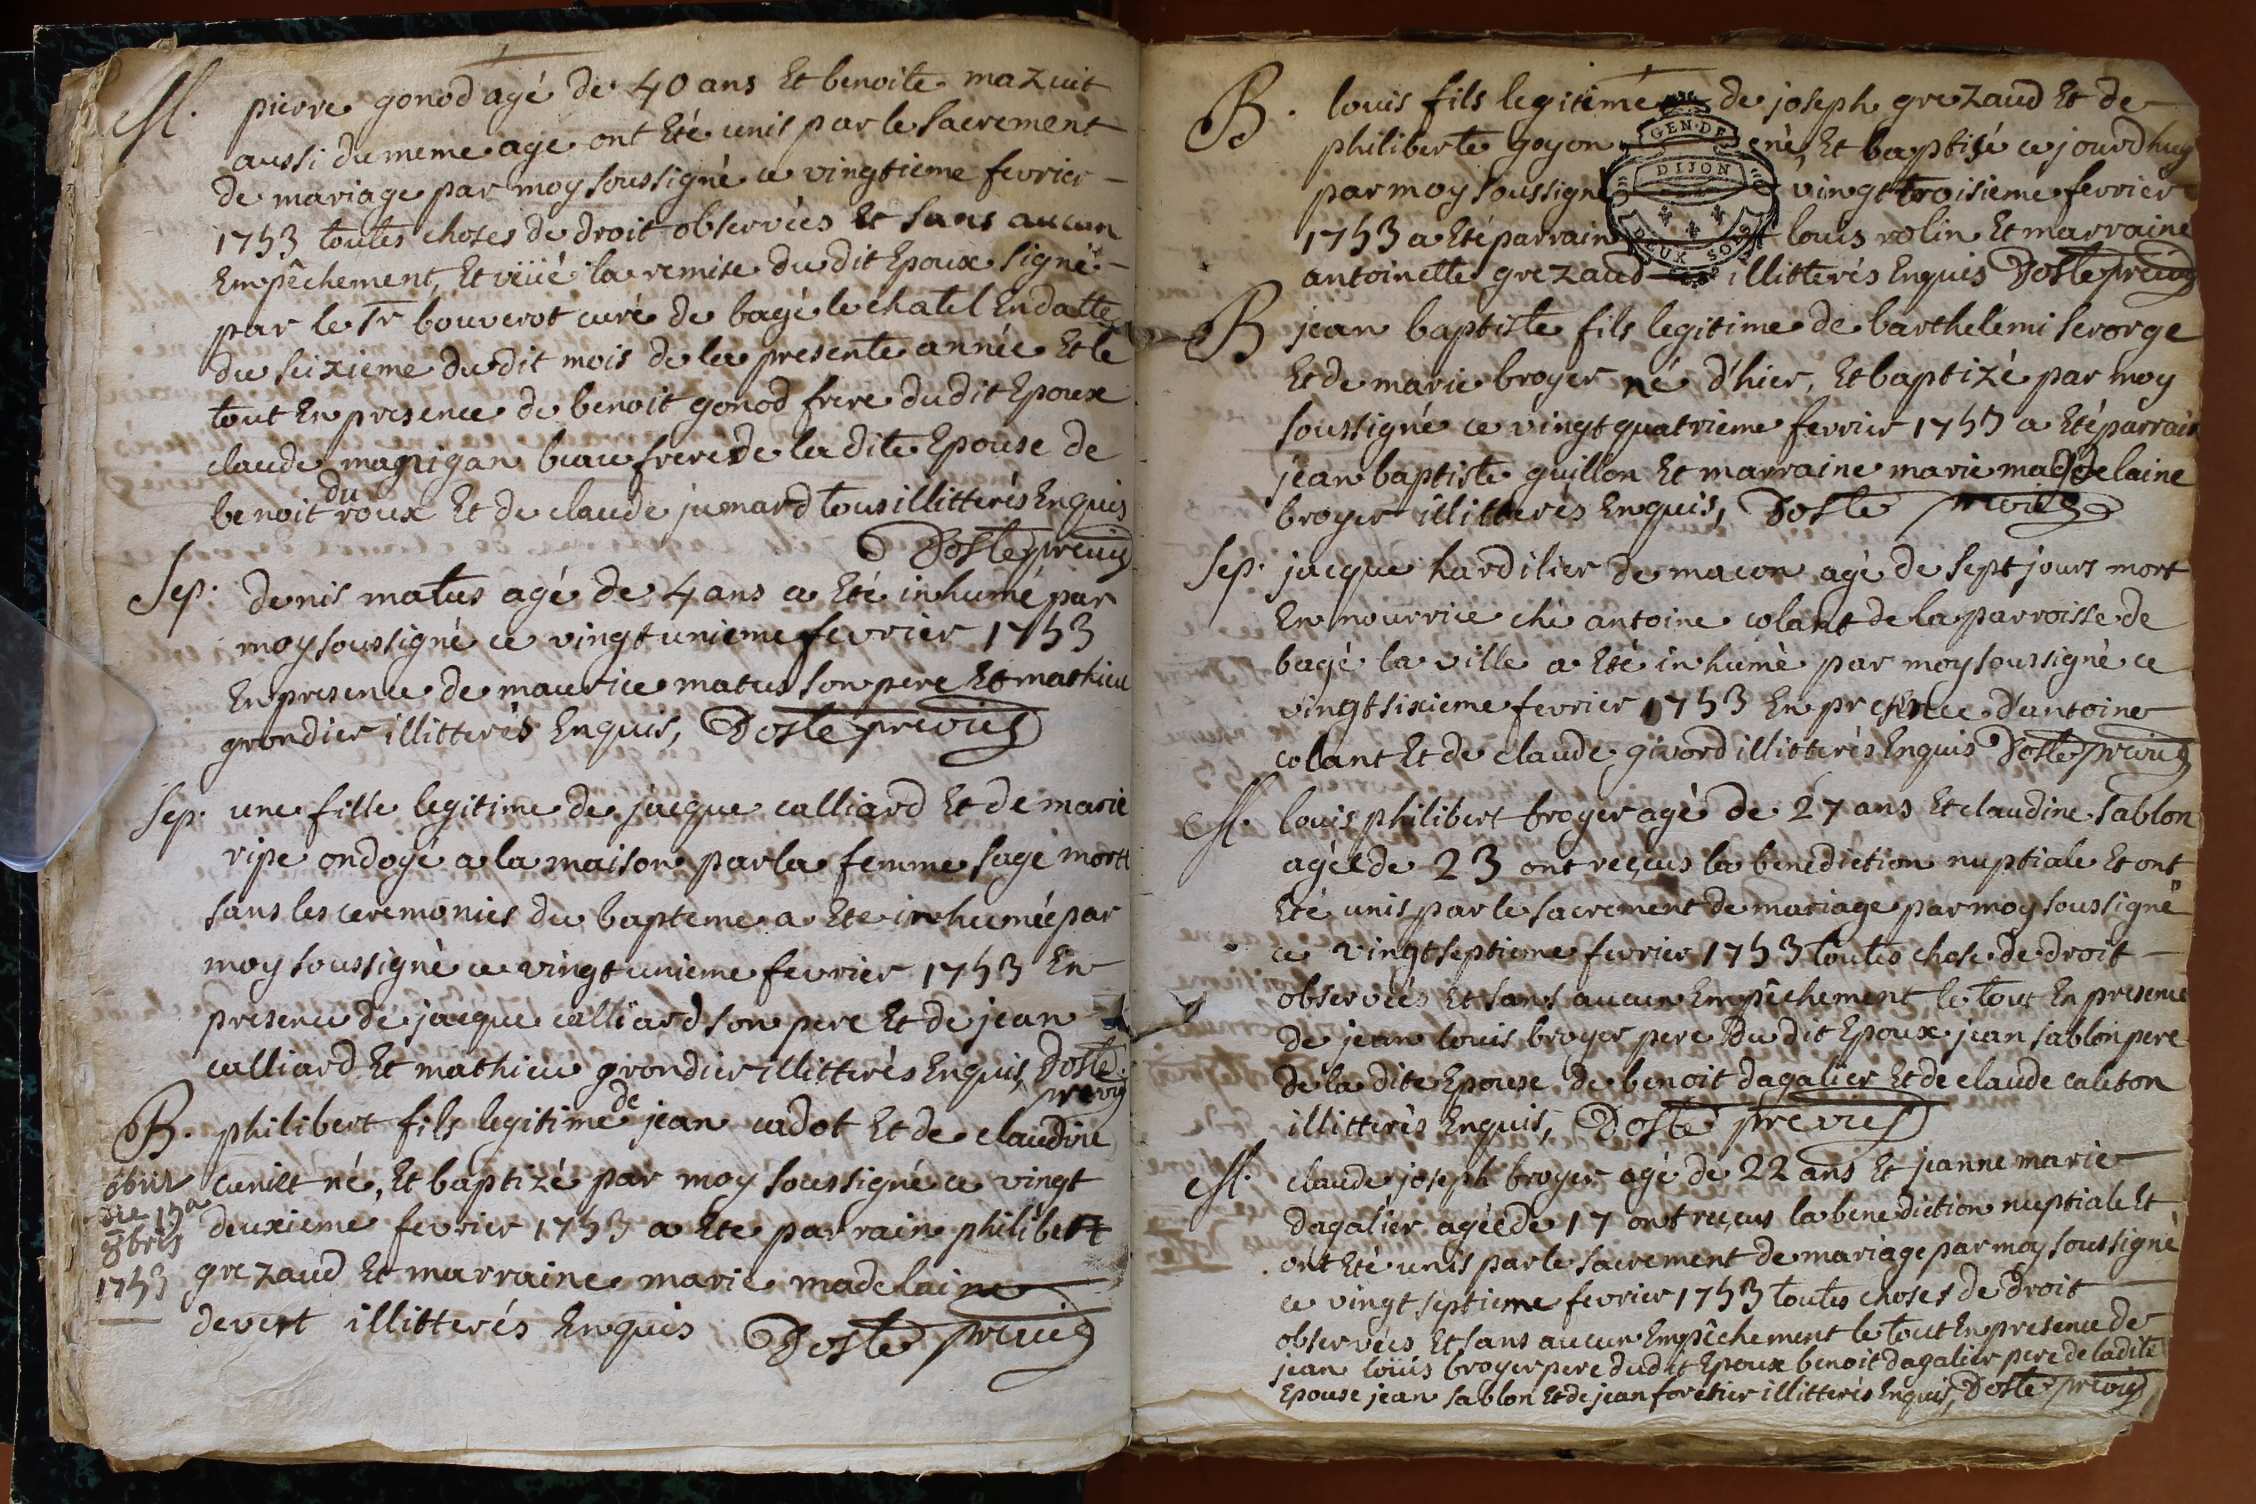 M. pierre gonod agé de 40 ans Et benoite mazuit
aussi du meme age ont Eté unis par le sacrement
de mariage par moy soussigné ce vingtieme fevrier
1753 toutes choses de droit observées Et sans aucun
Empêchement, Et vüüé la remise du dit Epoux signé
par le Sr bouverot curé de bagé le chatel En datte
du seixieme du dit mois de la presente année Et le
tout En presence de benoit gonod frere du dit Epoux
claude manigan beaufrere de la dite Epouse de
benoit du roux Et de claude jumard tous illitterés Enquis
Doste previs
Sep. denis matus agé de 4 ans a Eté inhumé par
moy soussigné ce vingt unieme fevrier 1753
En presence de maurice matus son pere Et mathieu
grondier illitterés Enquis, Doste previs
Sep. une fille legitime de jacque calliard Et de marie
ripe ondogé a la maison par la femme sage morte
sans les ceremonies du bapteme a Eté inhumée par
moy soussigné ce vingt unieme fevrier 1753 En
presence de jacque calliard son pere Et de jean
calliard Et mathieu grondier illitterés Enquis, Doste
previs
B. philibert fils legitime de jean cadot Et de claudine
cunilt né, Et baptizé par moy soussigné ce vingt
deuxieme fevrier 1753 a Eté parrain philibert
grezaud Et marraine marie madelaine
devert illitterés Enquis Doste previs
obiit
die 13a
8bris
1753
B. louis fils legitime de joseph grezaud Et de
philiberte goyon né, Et baptisé ce jourdhuy
par moy soussigné vingt troisieme fevrier
1753 a Eté parrain louis rolin Et marraine
antoinette grezaud illitterés Enquis Doste previs
GEN. DE
DIJON
DEUX SOLS
B jean baptiste fils legitime de barthelemi serorge
Et de marie broyer né d'hier, Et baptizé par moy
soussigné ce vingt quatrieme fevrier 1753 a Eté parrain
jean baptiste guillon Et marraine marie madelaine
broyer illitterés Enquis, Doste previs
Sep. jacque hardilier de macon agé de sept jours mort
En nourrice ché antoine colant de la parroisse de
bagé la ville a Eté inhumé par moy soussigné ce
vingt sixieme fevrier 1753 En presence d'antoine
colant Et de claude givord illitterés Enquis Doste previs
M. louis philibert broyer agé de 27 ans Et claudine sablon
agée de 23 ont reçus la benediction nuptiale Et ont
Eté unis par le sacrement de mariage par moy soussigné
ce vingt septieme fevrier 1753 toutes chose de droit
observées Et sans aucun Empêchement le tout En presence
de jean louis broyer pere du dit Epoux jean sablon pere
de la dite Epouse de benoit dagalier Et de claude caleton
illitterés Enquis, Doste previs
M. claude joseph broyer agé de 22 ans Et jeanne marie
dagalier agée de 17 ont reçus la benediction nuptiale Et
ont Eté unis par le sacrement de mariage par moy soussigné
ce vingt septieme fevrier 1753 toutes choses de droit
observées Et sans aucun Empêchement le tout En presence de
jean loüis broyer pere du dit Epoux benoit dagalier pere de la dite
Epouse jean sablon Et de jean foretier illitterés Enquis, Doste previs